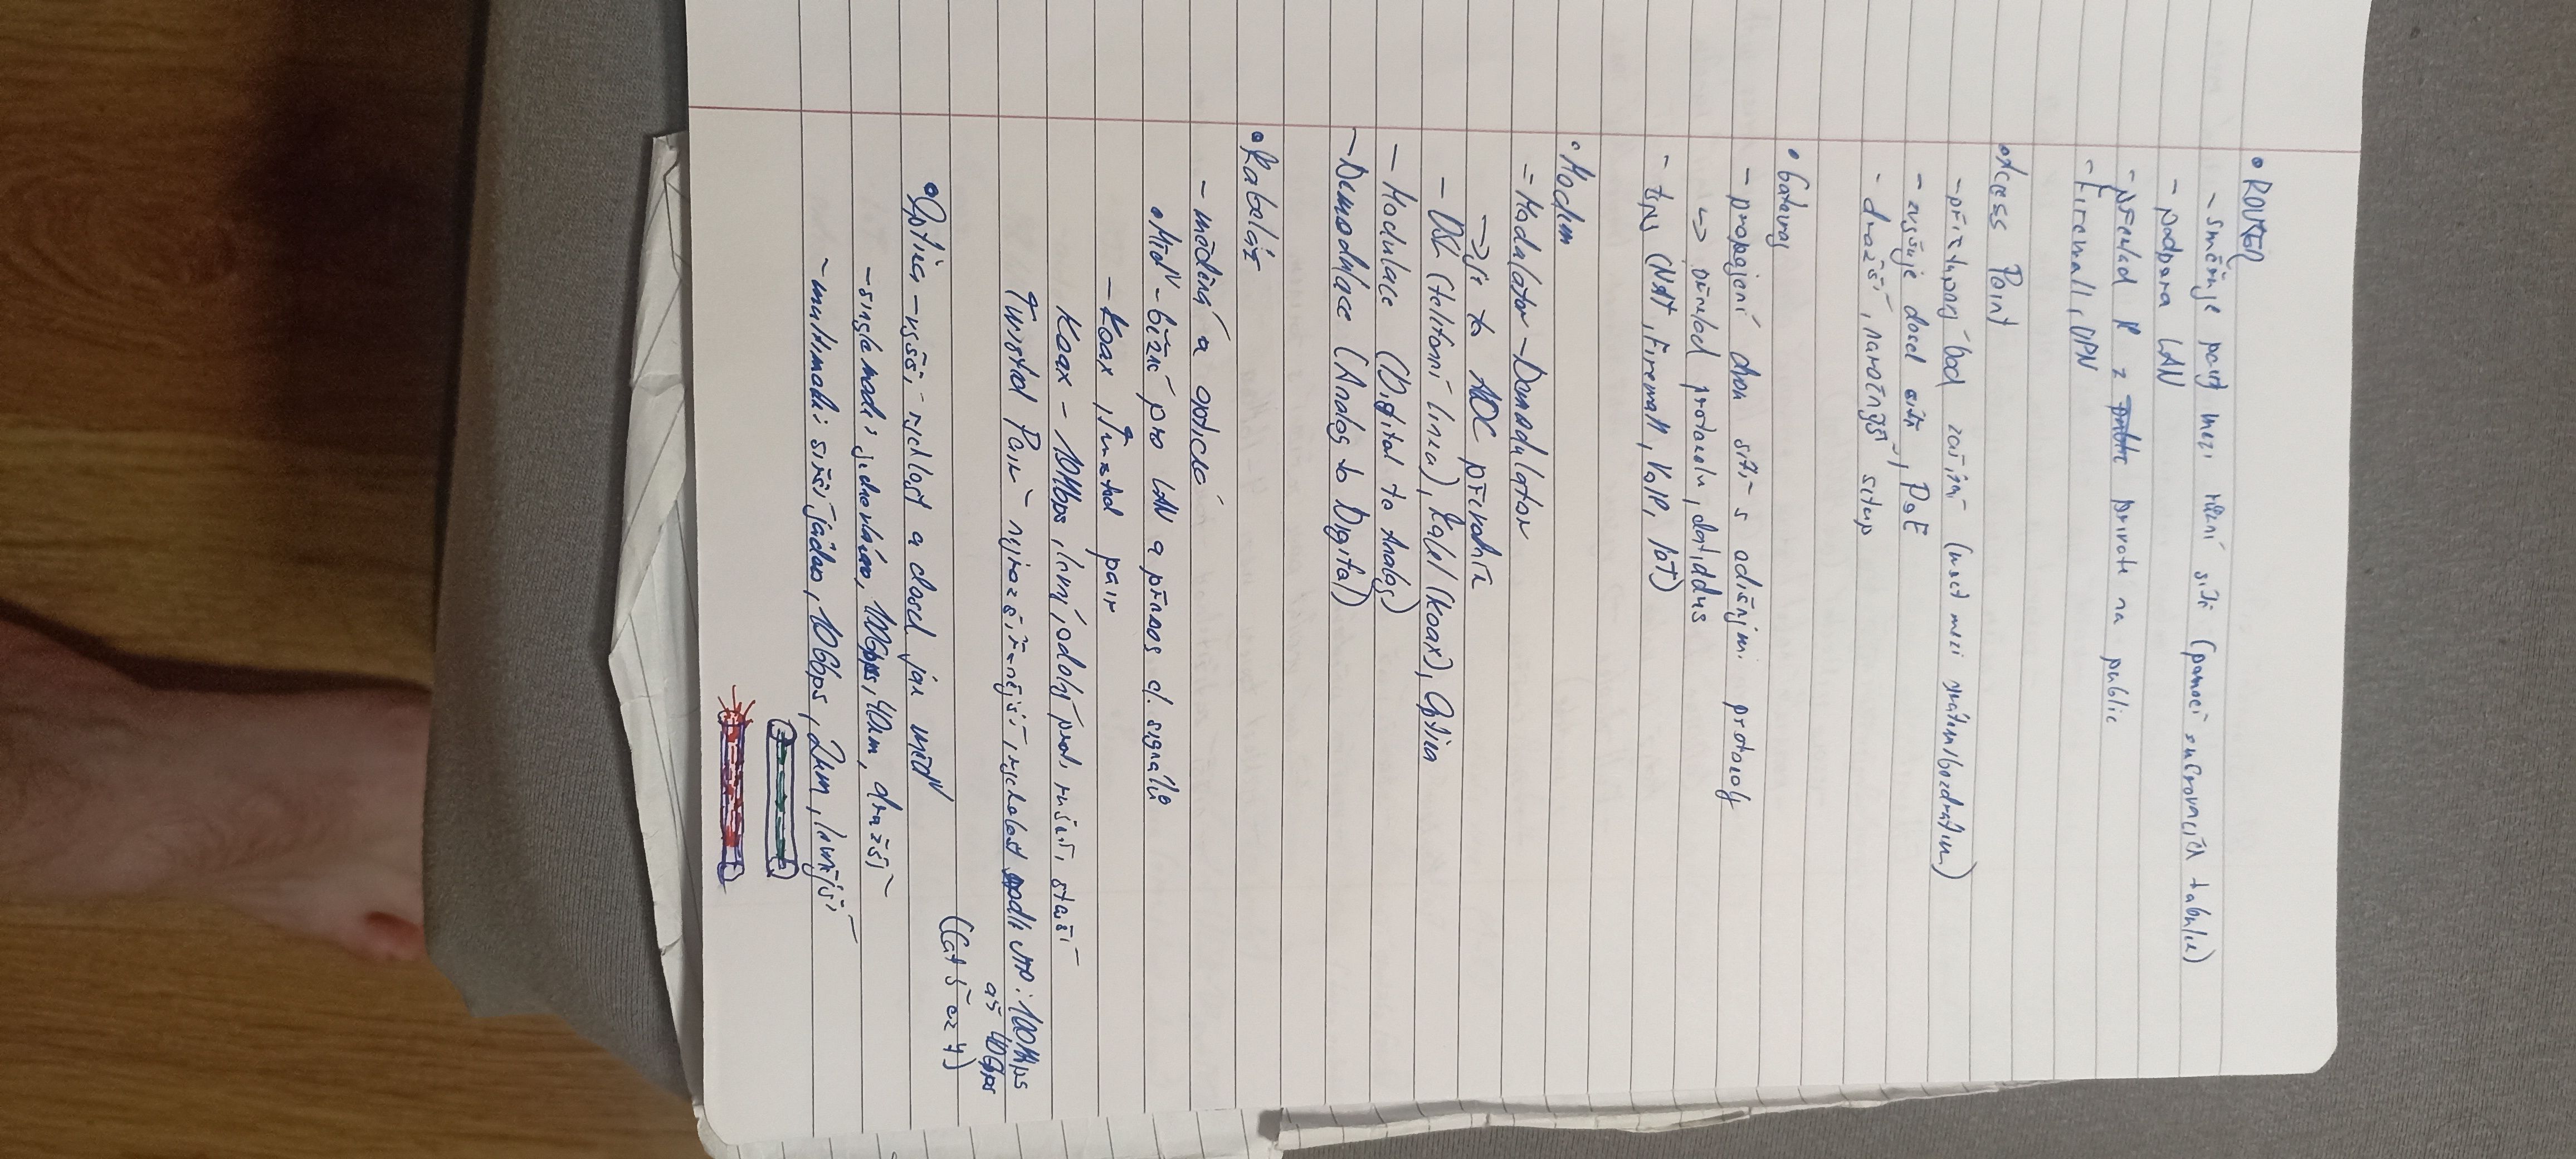 • ROUTER
- směřuje pakety mezi různí sítě (pomocí směrovacích tabulek)
- podpora LAN
- překlad IP z private na public
- Firewall, VPN
• Access Point
- přístupový bod zařízení (most mezi drátem/bezdrátem)
- zvyšuje dosah sítě, PoE
- dražší, náročnější setup
• Gateway
- propojení dvou sítí s odlišnými protokoly
↳ překlad protokolu, dat, address
- typy (NAT, Firewall, VoIP, IoT)
• Modem
= Modulator - Demodulator
→ je to ADC převodník
- DSL (telefonní linka), Kabel (Koax), Optika
- Modulace (Digital to Analog)
- Demodulace (Analog to Digital)
• Kabeláž
- měděná a optická
• Měď - běžné pro LAN a přenos el. signálů
- Koax, Twisted pair
Koax - 10Mbps, levný, odolný proti rušení, starší
Twisted Pair - nejrozšířenější, rychlost podle UTP: 100Mbps
až 40Gbps
(Cat 5 až 7)
• Optika - vyšší rychlost a dosah jak měď
- singlemode: jednovlákno, 100Gbps, 40km, dražší
- multimode: širší jádro, 10Gbps, 2km, levnější